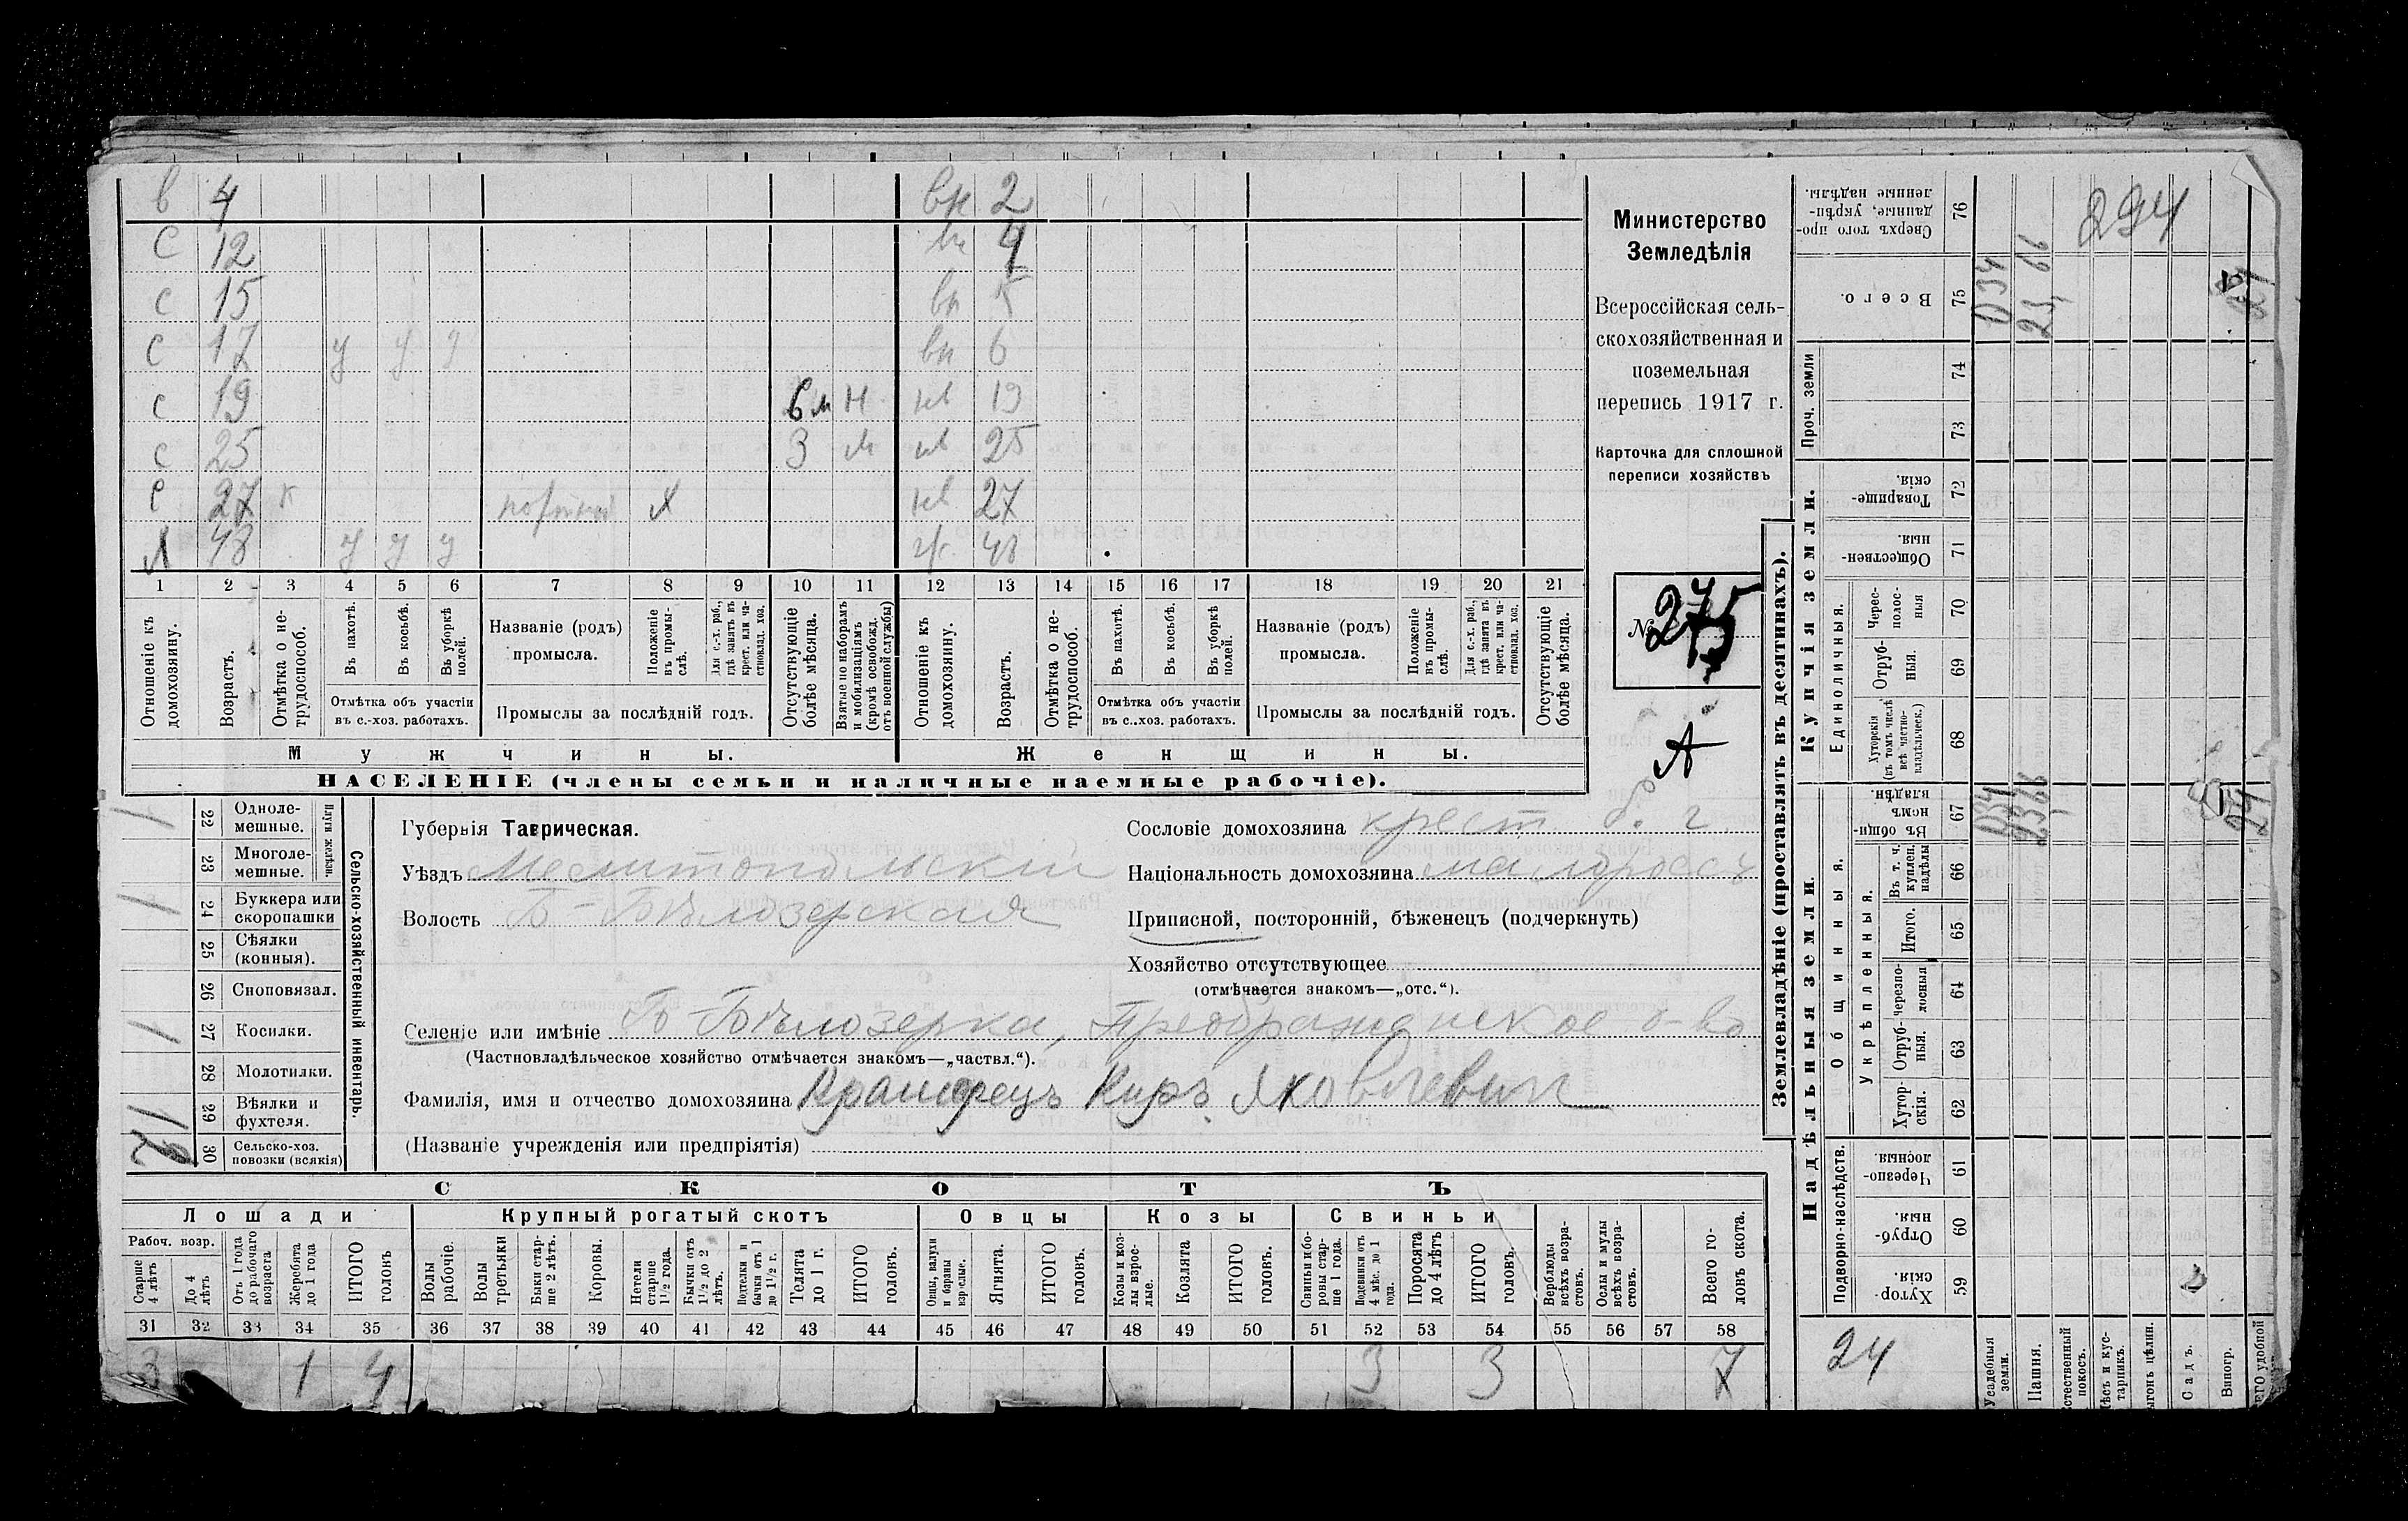 в 4 вн 2
с 12 вн 4
с 15 вн 5
с 17 у у у вн 6
с 19 6 м н нв 19
с 25 3 м нв 25
с 27 к портной х нв 27
х 48 у у у ж 48
1 2 3 4 5 6 7 8 9 10 11 12 13 14 15 16 17 18 19 20 21
Отношеніе къ домохозяину.
Возрастъ.
Отмѣтка о нетрудоспособ.
Въ пахотѣ.
Въ косьбѣ.
Въ уборкѣ полей.
Отмѣтка объ участіи въ с.-хоз. работахъ.
Названіе (родъ) промысла.
Положеніе въ промы-слѣ.
Для с.-х. раб., гдѣ занятъ въ крест. или ча-стновлад. хоз.
Промыслы за послѣдній годъ.
Отсутствующіе болѣе мѣсяца.
Взятые по наборамъ и мобилизаціямъ (кромѣ освобожд. отъ военной службы)
Отношеніе къ домохозяину.
Возрастъ.
Отмѣтка о не-трудоспособ.
Въ пахотѣ.
Въ косьбѣ.
Въ уборкѣ полей.
Отмѣтка объ участіи въ с.-хоз. работахъ.
Названіе (родъ) промысла.
Положеніе въ промы-слѣ.
Для с.-х. раб., гдѣ занята въ крест. или ча-стновлад. хоз.
Промыслы за послѣдній годъ.
Отсутствующіе болѣе мѣсяца.
Мужчины.
Женщины.
НАСЕЛЕНІЕ (члены семьи и наличные наемные рабочіе).
Министерство
Земледѣлія
Всероссійская сель-
скохозяйственная и
поземельная
перепись 1917 г.
Карточка для сплошной
переписи хозяйствъ
№ 275
А
Плуги желѣзн.
Сельско-хозяйственный инвентарь.
1 22 Одноле-мешные.
23 Многоле-мешные.
1 24 Буккера или скоропашки
25 Сѣялки (конныя).
26 Сноповязал.
1 27 Косилки.
28 Молотилки.
1 29 Вѣялки и фухтеля.
2 30 Сельско-хоз. повозки (всякія)
Губернія Таврическая.
Уѣздъ Мелитопольскій
Волость Б-Бѣлозерская
Сословіе домохозяина крест б. г.
Національность домохозяина малороссъ
Приписной, посторонній, бѣженецъ (подчеркнуть)
Хозяйство отсутствующее
(отмѣчается знакомъ—„отс.“).
Селеніе или имѣніе Б-Бѣлозерка, Преображенское о-во
(Частновладѣльческое хозяйство отмѣчается знакомъ—„частвл.“).
Фамилія, имя и отчество домохозяина Крамарець Киръ Яковлевич
(Названіе учрежденія или предпріятія)
СКОТЪ
Лошади
Крупный рогатый скотъ
Овцы
Козы
Свиньи
Рабоч. возр.
Старше 4 лѣтъ
До 4 лѣтъ
Отъ 1 года до рабочаго возраста
Жеребята до 1 года
ИТОГО головъ
Волы рабочіе.
Волы третьяки
Быки стар-ше 2 лѣтъ.
Коровы.
Нетели старше 1½ года.
Бычки отъ 1½ до 2 лѣтъ.
Подтелки и бычки отъ 1 до 1½ г.
Телята до 1 г.
ИТОГО головъ.
Овцы, валухи и бараны взрослые.
Ягнята.
ИТОГО головъ.
Козы и коз-лы взрос-лые.
Козлята
ИТОГО головъ.
Свиньи и бо-ровы стар-ше 1 года.
Подсвинки отъ 4 мѣс. до 1 года.
Поросята до 4 лѣтъ
ИТОГО головъ.
Верблюды всѣхъ возра-стовъ.
Ослы и мулы всѣхъ возра-стовъ.
Всего го-ловъ скота.
31 32 33 34 35 36 37 38 39 40 41 42 43 44 45 46 47 48 49 50 51 52 53 54 55 56 57 58
3 1 4 3 3 7
Землевладѣніе (проставлять въ десятинахъ).
Купчія земли.
Надѣльныя земли.
Сверхъ того про-данные, укрѣп-ленные надѣлы. 76
Всего. 75
Проч. земли
74
73
Товарище-скія. 72
Обществен-ныя. 71
Единоличныя.
Черес-полос-ныя 70
Отруб-ныя. 69
Хуторскія (въ томъ числѣ всѣ частно-владѣльческ.) 68
Общинныя.
Въ общи-номъ владѣн. 67
Укрѣпленныя.
Въ т. ч. куплен. надѣлы 66
Итого. 65
Черезпо-лосныя 64
Отруб-ныя. 63
Хутор-скія. 62
Подворно-наслѣдств.
Черезпо-лосныя. 61
Отруб-ныя. 60
Хутор-скія. 59
294
0 34
23, 66
24
Усадебныя земли.
Пашня.
стественный покосъ.
ѣсъ и кус-тарникъ.
ыгонъ цѣлин.
Садъ.
Виногр.
его удобной